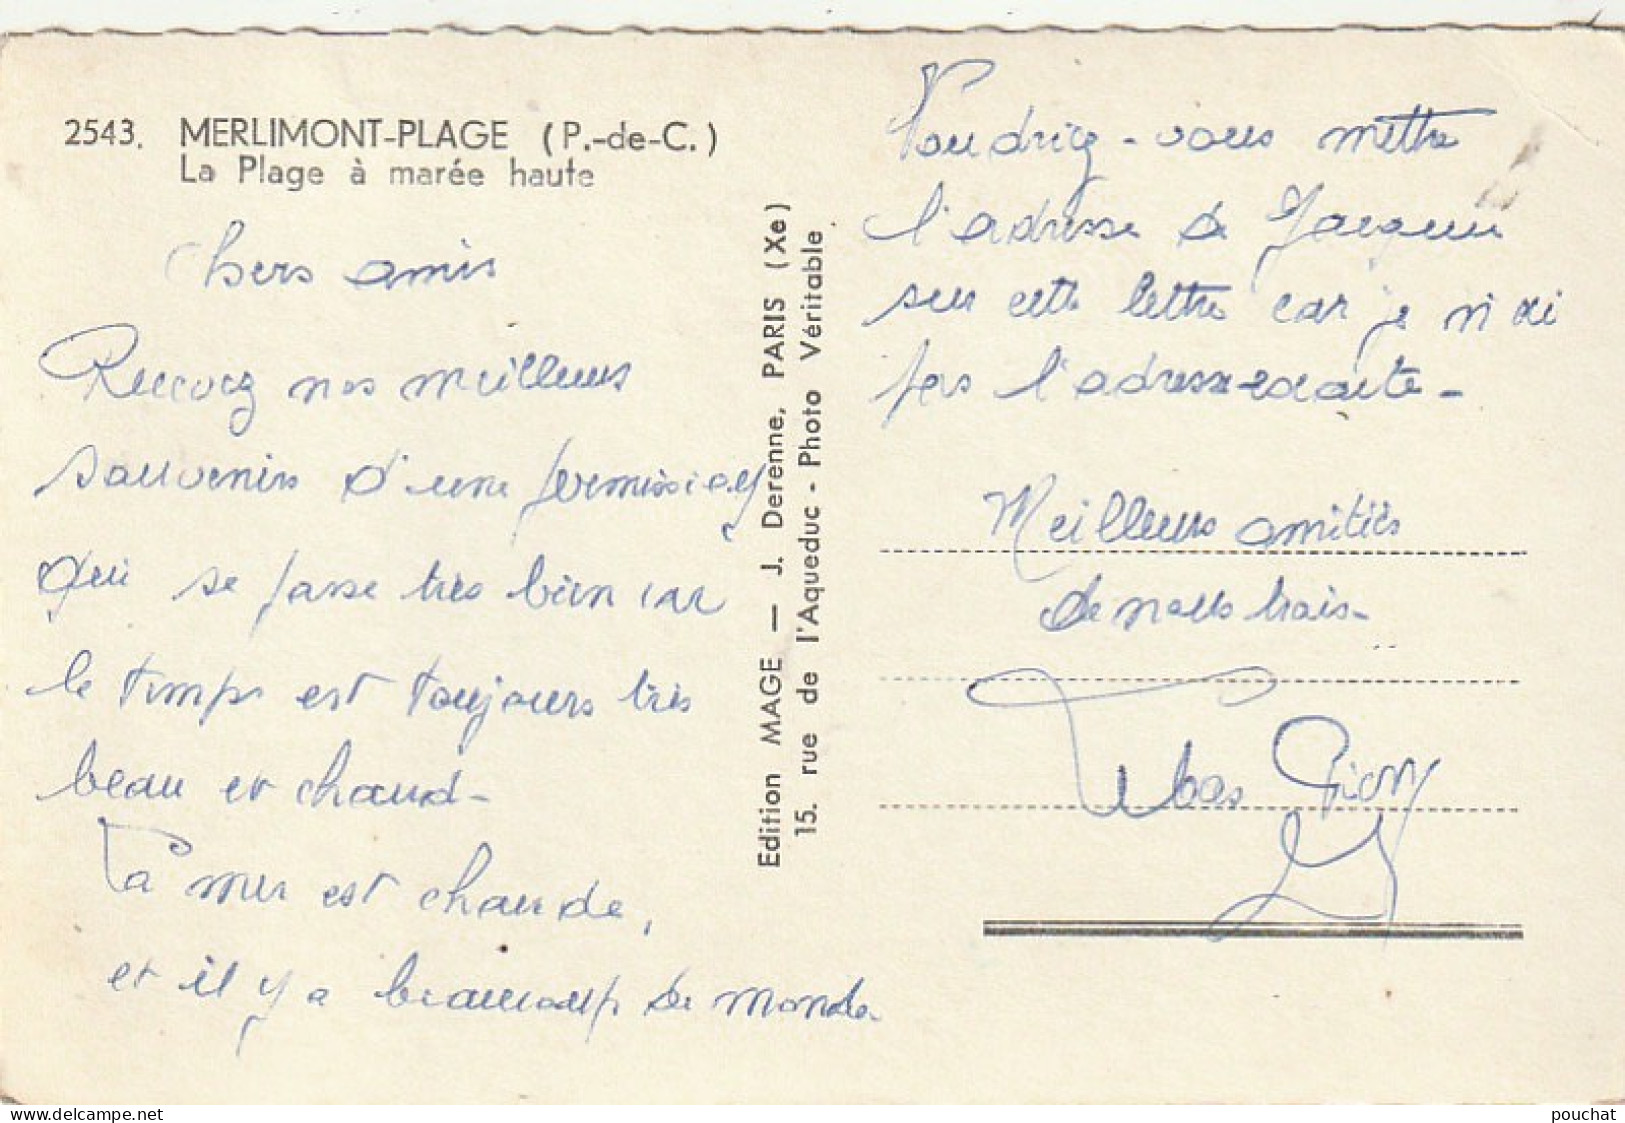 2543. MERLIMONT-PLAGE (P.-de-C.)
La Plage à marée haute
Chers amis
Recevez nos meilleurs
souvenirs d'une permission
qui se passe très bien car
le temps est toujours très
beau et chaud-
La mer est chaude,
et il y a beaucoup de monde.
Edition MAGE — J. Derenne, PARIS (Xe)
15. rue de l'Aqueduc - Photo Véritable
Voudriez-vous mettre
l'adresse de Jacques
sur cette lettre car je n'ai
pas l'adresse exacte-
Meilleurs amitiés
de nous trois-
www.delcampe.net
pouchat